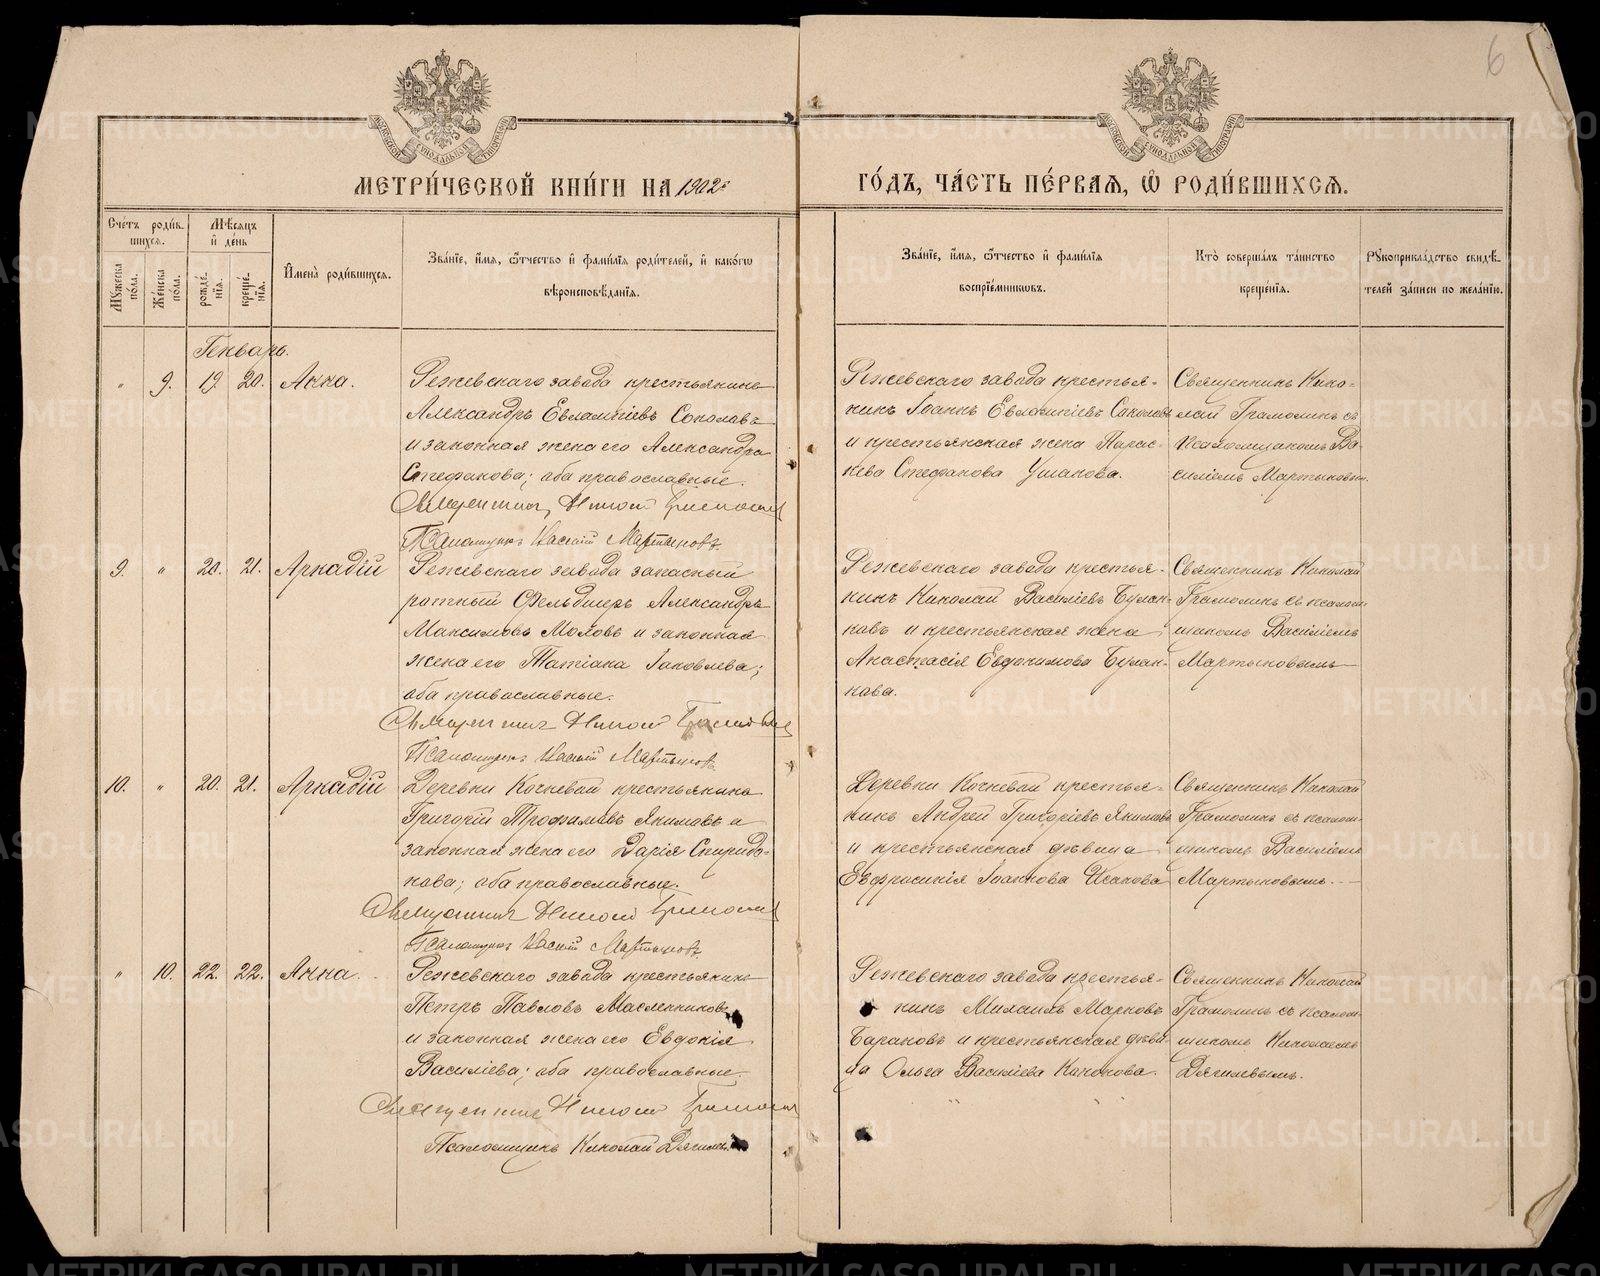 6
МЕТРИ́ЧЕСКОЙ КНИ́ГИ НА 1902й
ГО́ДЪ, ЧА́СТЬ ПЕ́РВАѦ, Ѡ҆ РОДИ́ВШИХСѦ.
Сче́тъ роди́в-
шихсѧ.
Мѣ́сѧцъ
и҆ де́нь
Мꙋ́жеска по́ла.
Же́нска по́ла.
рожде́-
нїѧ.
креще́-
нїѧ.
И҆мена̀ роди́вшихсѧ.
Зва́нїе, и҆́мѧ, ѻ҆́тчество и҆ фами́лїѧ роди́телей, и҆ како́гѡ
вѣроисповѣ́данїѧ.
Зва́нїе, и҆́мѧ, ѻ҆́тчество и҆ фами́лїѧ
воспрїе́мникѡвъ.
Кто̀ соверша́лъ та́инство
креще́нїѧ.
Рꙋкоприкла́дство свидѣ́-
телей за́писи по жела́нїю.
Генварь.
" 9. 19. 20. Анна.
Режевскаго завода крестьянинъ
Александръ Евлампіевъ Соколовъ
и законная жена его Александра
Стефанова; оба православные.
Священникъ Николай Грамолинъ
Псаломщикъ Василій Мартыновъ
Режевскаго завода крестья-
нинъ Іоаннъ Евлампіевъ Соколовъ
и крестьянская жена Парас-
кева Стефанова Ушакова.
Священникъ Нико-
лай Грамолинъ съ
псаломщикомъ Ва-
силіемъ Мартыновы
9. " 20. 21. Аркадій
Режевскаго завода запасный
ротный Фельдшеръ Александръ
Максимовъ Моловъ и законная
жена его Татіана Іаковлева;
оба православные.
Священникъ Николай Грамолинъ
Псаломщикъ Василій Мартыновъ
Режевскаго завода крестья-
нинъ Николай Василіевъ Булан-
ковъ и крестьянская жена
Анастасія Евдокимова Булан-
кова.
Священникъ Николай
Грамолинъ съ псалом-
щикомъ Василіемъ
Мартыновымъ
10. " 20. 21. Аркадій
Деревни Кочневой крестьянинъ
Григорій Трофимовъ Якимовъ и
законная жена его Дарія Спиридо-
нова; оба православные.
Священникъ Николай Грамолинъ
Псаломщикъ Василій Мартыновъ
Деревни Кочневой крестья-
нинъ Андрей Григоріевъ Якимовъ
и крестьянская дѣвица
Евфросинія Іоаннова Исакова
Священникъ Николай
Грамолинъ съ псалом-
щикомъ Василіемъ
Мартыновымъ.
" 10. 22. 22. Анна.
Режевскаго завода крестьянинъ
Петръ Павловъ Масленниковъ
и законная жена его Евдокія
Василіева; оба православные.
Священникъ Николай Грамолинъ
Псаломщикъ Николай Дягилевъ
Режевскаго завода крестья-
нинъ Михаилъ Марковъ
Барановъ и крестьянская дѣви-
ца Ольга Василіева Кононова.
Священникъ Николай
Грамолинъ съ псалом-
щикомъ Николаемъ
Дягилевымъ.